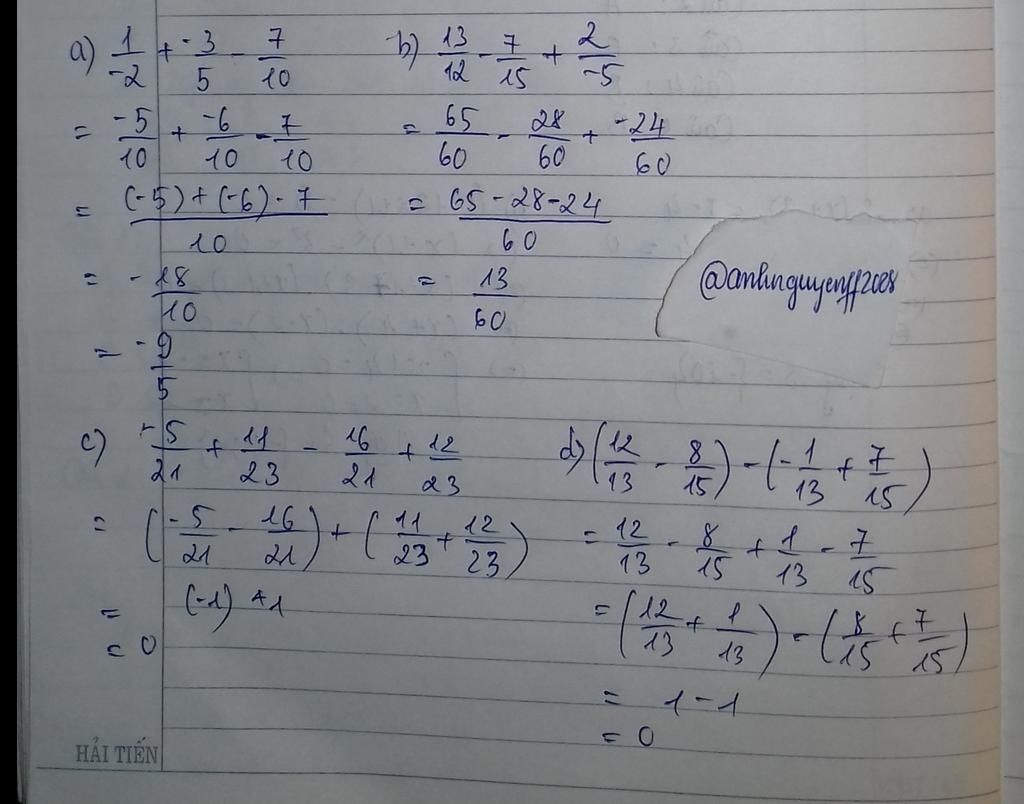 a) 1/-2 + -3/5 - 7/10
= -5/10 + -6/10 - 7/10
= (-5) + (-6) - 7 / 10
= -18/10
= -9/5
b) 13/12 - 7/15 + 2/-5
= 65/60 - 28/60 + -24/60
= 65 - 28 - 24 / 60
= 13/60
@anhnguyenff2008
c) -5/21 + 11/23 - 16/21 + 12/23
= (-5/21 - 16/21) + (11/23 + 12/23)
= (-1) + 1
= 0
d) (12/13 - 8/15) - (-1/13 + 7/15)
= 12/13 - 8/15 + 1/13 - 7/15
= (12/13 + 1/13) - (8/15 + 7/15)
= 1 - 1
= 0
HẢI TIẾN